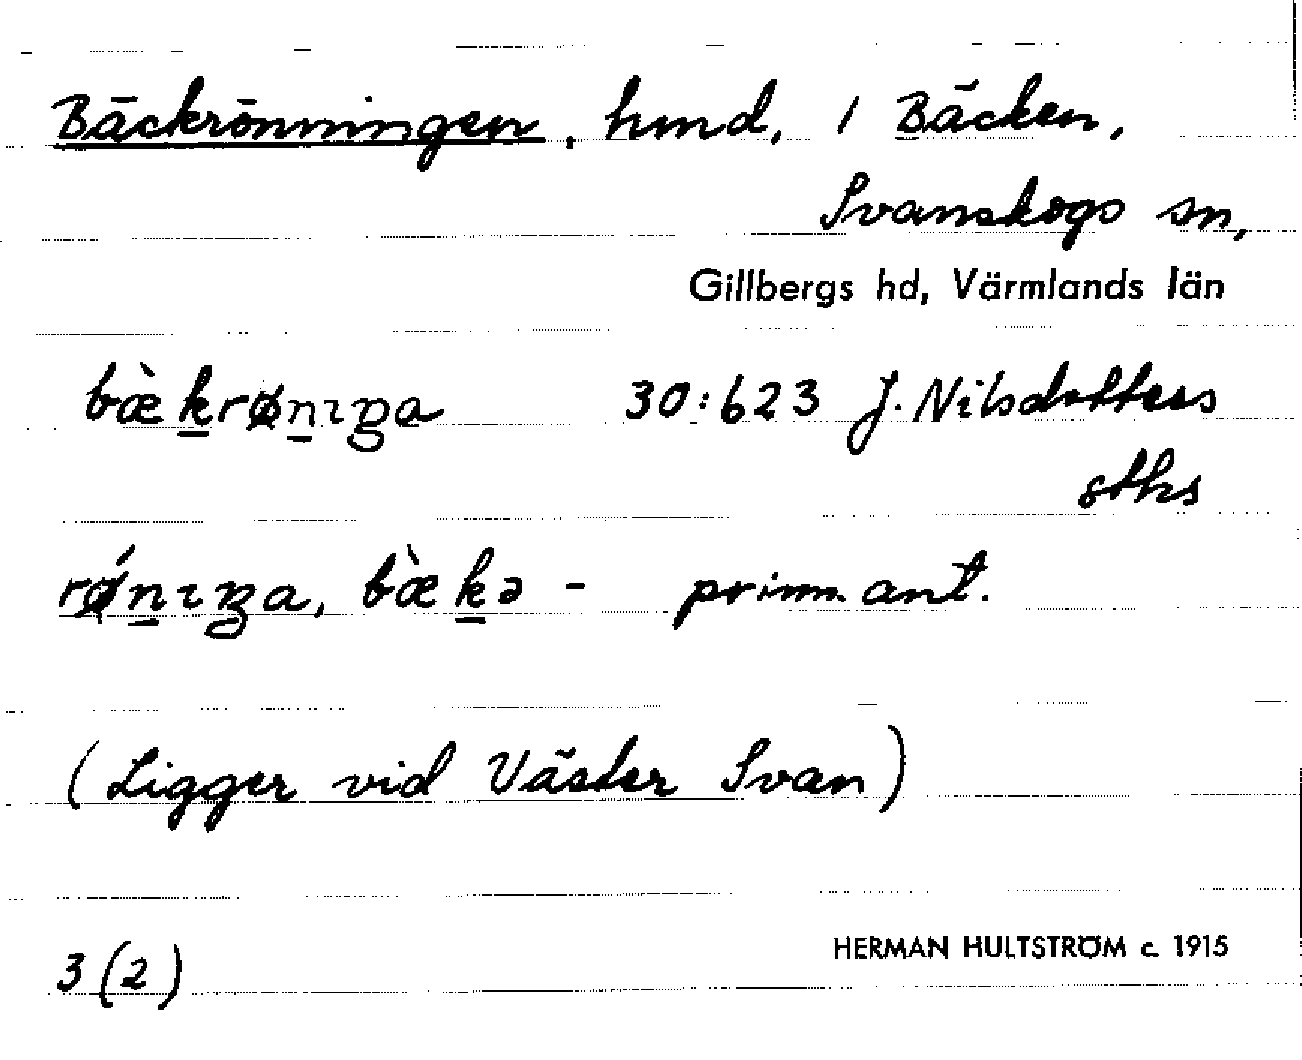 Bäckrönningen, hmd, 1 Bäcken,
Svanskogs sn,
Gillbergs hd, Värmlands län
bæ̀k̲røn̲ıŋa 30:623 J. Nilsdotters
sths
rǿn̲ıŋa, bæ̀k̲ə - primant.
(Ligger vid Väster Svan)
3(2) HERMAN HULTSTRÖM c. 1915